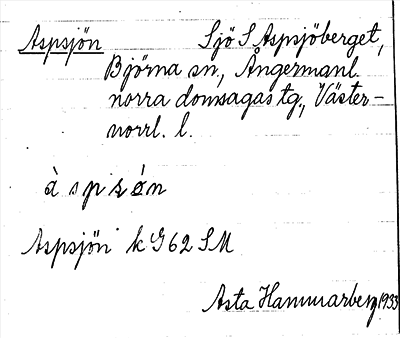 Aspsjön Sjö S Aspsjöberget,
Björna sn, Ångermanl.
norra domsagas tg., Väster-
norrl. l.
à s p s ó n
Aspsjön k G 62 SM
Asta Hammarberg 1933